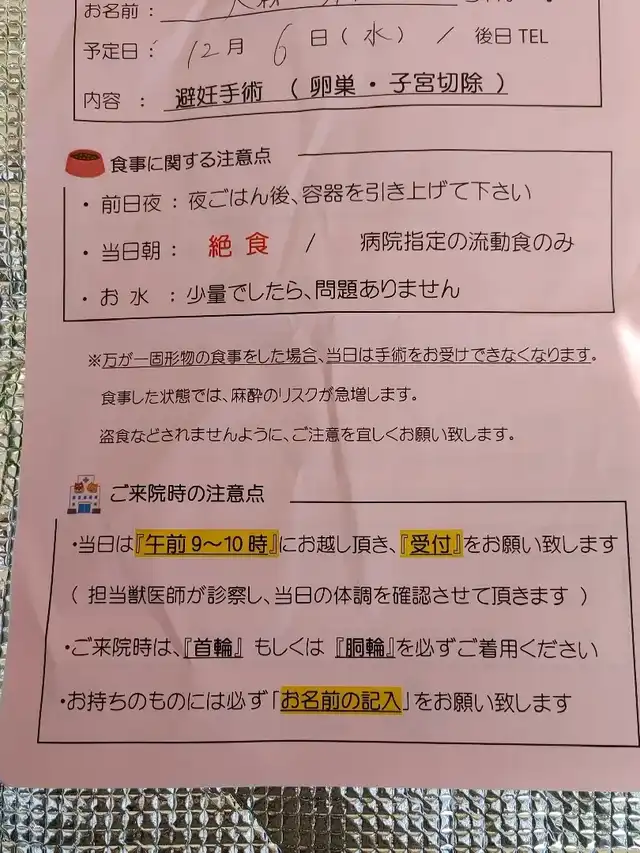 お名前：
予定日： 12月 6日（水） / 後日TEL
内容 ： 避妊手術 （ 卵巣・子宮切除 ）
食事に関する注意点
・ 前日夜 ： 夜ごはん後、容器を引き上げて下さい
・ 当日朝 ： 絶食 / 病院指定の流動食のみ
・ お 水 ： 少量でしたら、問題ありません
※万が一固形物の食事をした場合、当日は手術をお受けできなくなります。
食事した状態では、麻酔のリスクが急増します。
盗食などされませんように、ご注意を宜しくお願い致します。
ご来院時の注意点
・当日は『午前9～10時』にお越し頂き、『受付』をお願い致します
（ 担当獣医師が診察し、当日の体調を確認させて頂きます ）
・ご来院時は、『首輪』 もしくは 『胴輪』を必ずご着用ください
・お持ちのものには必ず「お名前の記入」をお願い致します